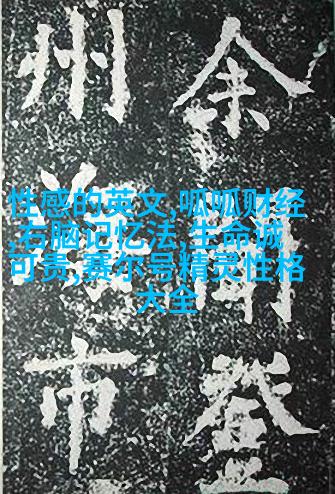 余
登
州
市
性感的英文,呱呱财经
,右脑记忆法,生命诚
可贵,赛尔号精灵性格
大全